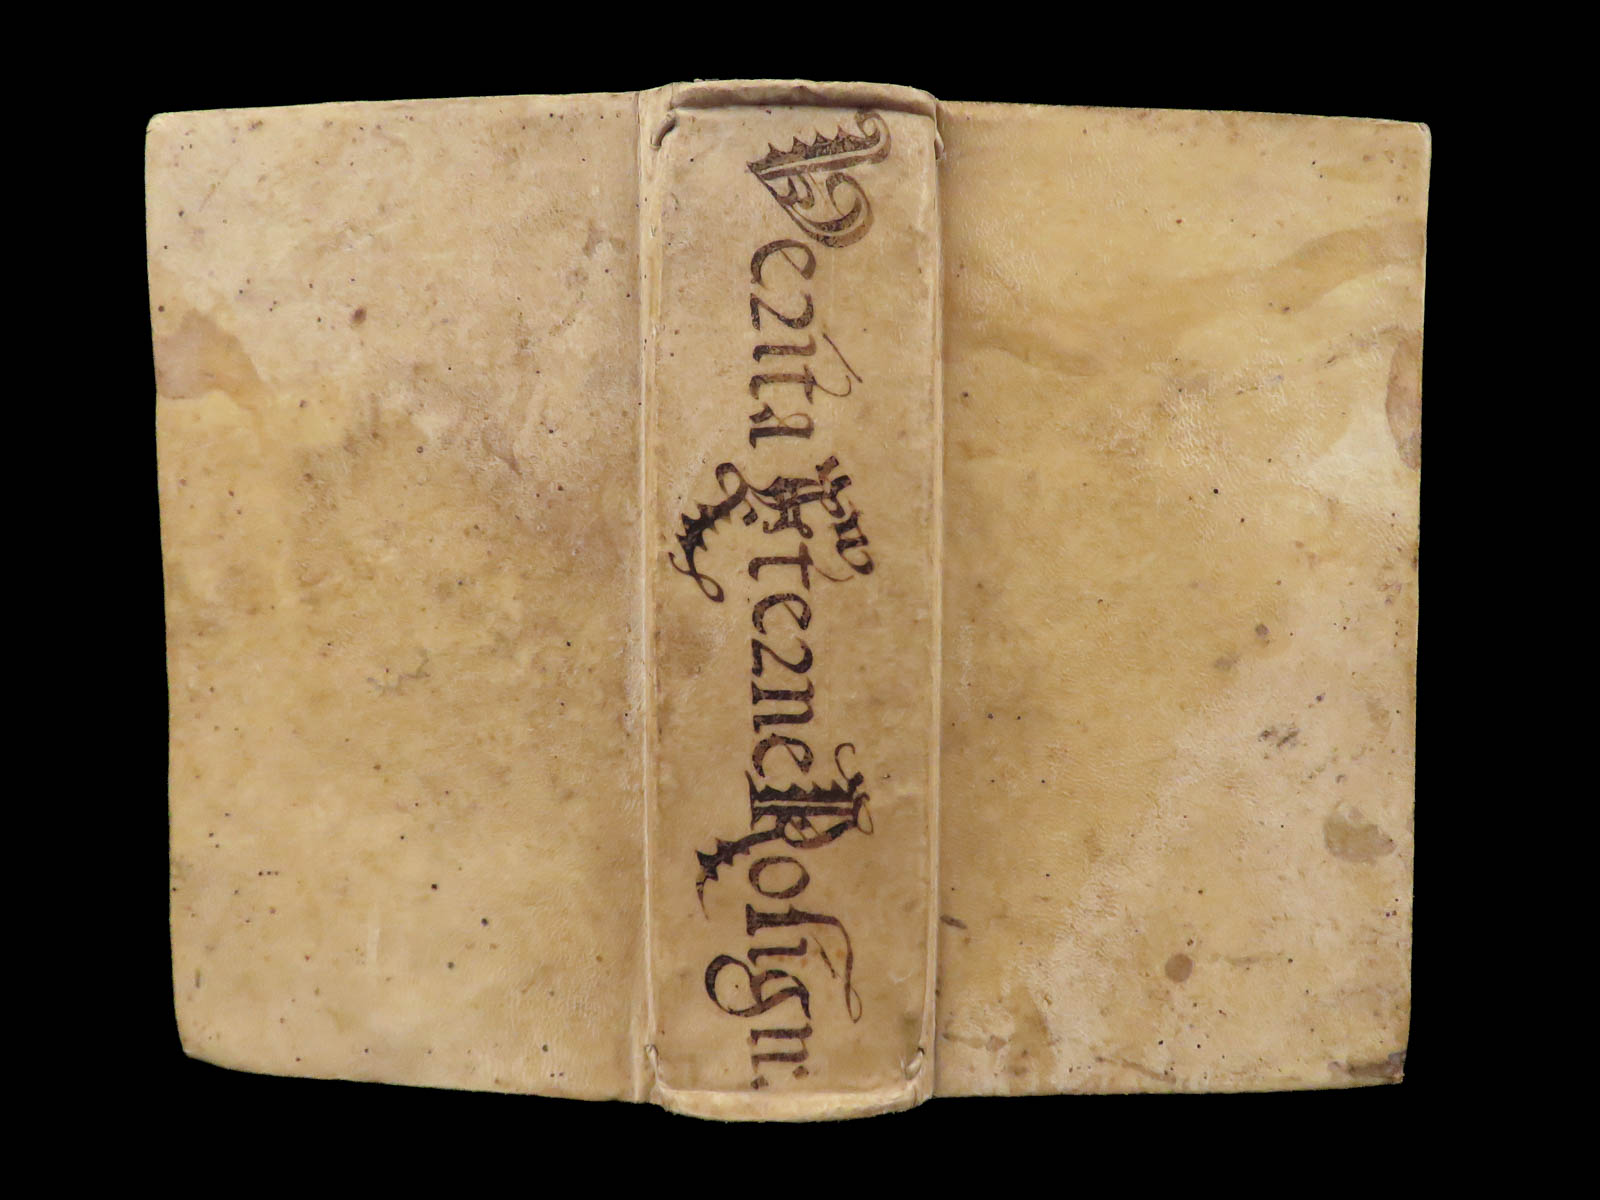 Verita Eterne Rosign: